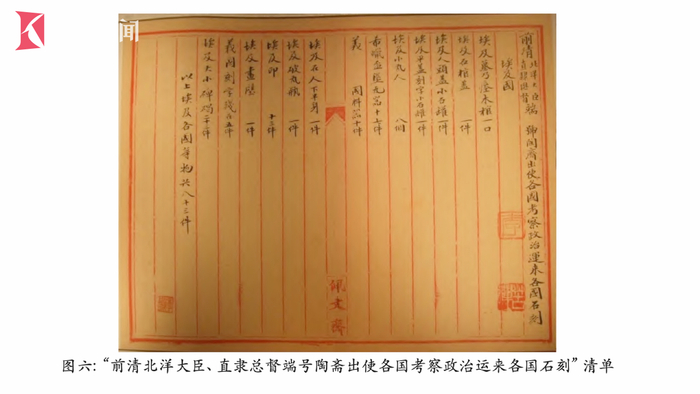 闻
前清北洋大臣直隸總督端 號陶齋出使各國考察政治運來各國石刻
埃及國
埃及 木棺 一口
埃及石棺蓋 一件
埃及人頭蓋小石罐 一件
埃及平蓋刻字小石罐 一件
埃及小瓦人 八個
瓦器十六件
義 國料器十件
佩文齋
埃及石人下半身一件
埃及破瓦瓶 一件
埃及印 十三件
埃及畫壁 一件
義國刻字殘石五件
埃及大小碑碣 件
以上埃及各國等物共八十三件
图六：“前清北洋大臣、直隶总督端号陶斋出使各国考察政治运来各国石刻”清单